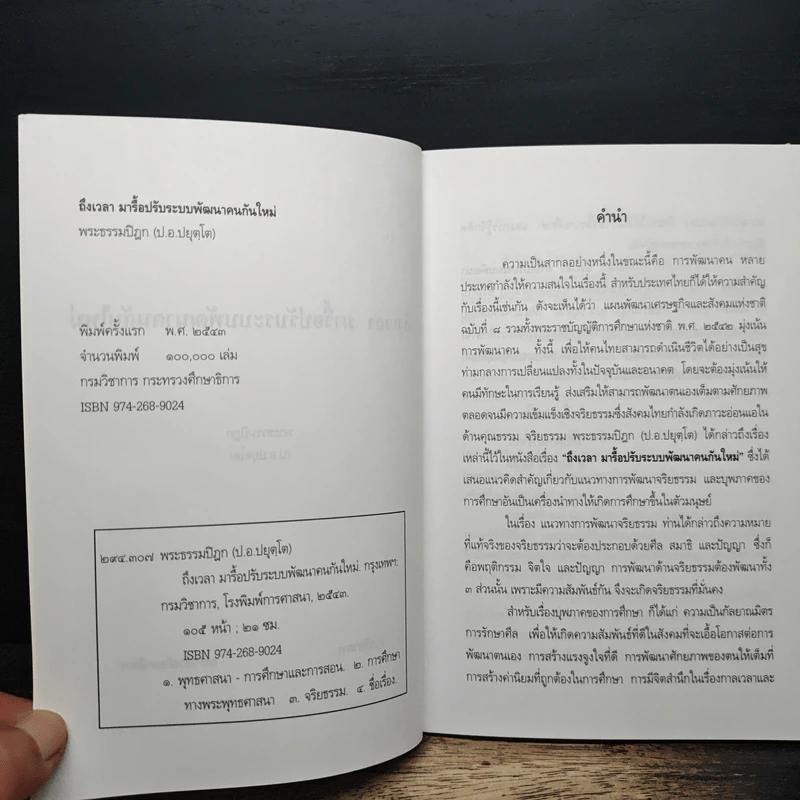 ถึงเวลา มารื้อปรับระบบพัฒนาคนกันใหม่
พระธรรมปิฎก (ป.อ.ปยุตฺโต)
พิมพ์ครั้งแรก พ.ศ. ๒๕๔๓
จำนวนพิมพ์ ๑๐๐,๐๐๐ เล่ม
กรมวิชาการ กระทรวงศึกษาธิการ
ISBN 974-268-9024
๒๙๔.๓๐๗ พระธรรมปิฎก (ป.อ.ปยุตฺโต)
ถึงเวลา มารื้อปรับระบบพัฒนาคนกันใหม่. กรุงเทพฯ:
กรมวิชาการ, โรงพิมพ์การศาสนา, ๒๕๔๓.
๑๐๕ หน้า ; ๒๑ ซม.
ISBN 974-268-9024
๑. พุทธศาสนา - การศึกษาและการสอน. ๒. การศึกษา
ทางพระพุทธศาสนา ๓. จริยธรรม. ๔. ชื่อเรื่อง.
คำนำ
ความเป็นสากลอย่างหนึ่งในขณะนี้คือ การพัฒนาคน หลาย
ประเทศกำลังให้ความสนใจในเรื่องนี้ สำหรับประเทศไทยก็ได้ให้ความสำคัญ
กับเรื่องนี้เช่นกัน ดังจะเห็นได้ว่า แผนพัฒนาเศรษฐกิจและสังคมแห่งชาติ
ฉบับที่ ๘ รวมทั้งพระราชบัญญัติการศึกษาแห่งชาติ พ.ศ. ๒๕๔๒ มุ่งเน้น
การพัฒนาคน ทั้งนี้ เพื่อให้คนไทยสามารถดำเนินชีวิตได้อย่างเป็นสุข
ท่ามกลางการเปลี่ยนแปลงทั้งในปัจจุบันและอนาคต โดยจะต้องมุ่งเน้นให้
คนมีทักษะในการเรียนรู้ ส่งเสริมให้สามารถพัฒนาตนเองเต็มตามศักยภาพ
ตลอดจนมีความเข้มแข็งเชิงจริยธรรมซึ่งสังคมไทยกำลังเกิดภาวะอ่อนแอใน
ด้านคุณธรรม จริยธรรม พระธรรมปิฎก (ป.อ.ปยุตฺโต) ได้กล่าวถึงเรื่อง
เหล่านี้ไว้ในหนังสือเรื่อง "ถึงเวลา มารื้อปรับระบบพัฒนาคนกันใหม่" ซึ่งได้
เสนอแนวคิดสำคัญเกี่ยวกับแนวทางการพัฒนาจริยธรรม และบุพภาคของ
การศึกษาอันเป็นเครื่องนำทางให้เกิดการศึกษาขึ้นในตัวมนุษย์
ในเรื่อง แนวทางการพัฒนาจริยธรรม ท่านได้กล่าวถึงความหมาย
ที่แท้จริงของจริยธรรมว่าจะต้องประกอบด้วยศีล สมาธิ และปัญญา ซึ่งก็
คือพฤติกรรม จิตใจ และปัญญา การพัฒนาด้านจริยธรรมต้องพัฒนาทั้ง
๓ ส่วนนั้น เพราะมีความสัมพันธ์กัน จึงจะเกิดจริยธรรมที่มั่นคง
สำหรับเรื่องบุพภาคของการศึกษา ก็ได้แก่ ความเป็นกัลยาณมิตร
การรักษาศีล เพื่อให้เกิดความสัมพันธ์ที่ดีในสังคมที่จะเอื้อโอกาสต่อการ
พัฒนาตนเอง การสร้างแรงจูงใจที่ดี การพัฒนาศักยภาพของตนให้เต็มที่
การสร้างค่านิยมที่ถูกต้องในการศึกษา การมีจิตสำนึกในเรื่องกาลเวลาและ